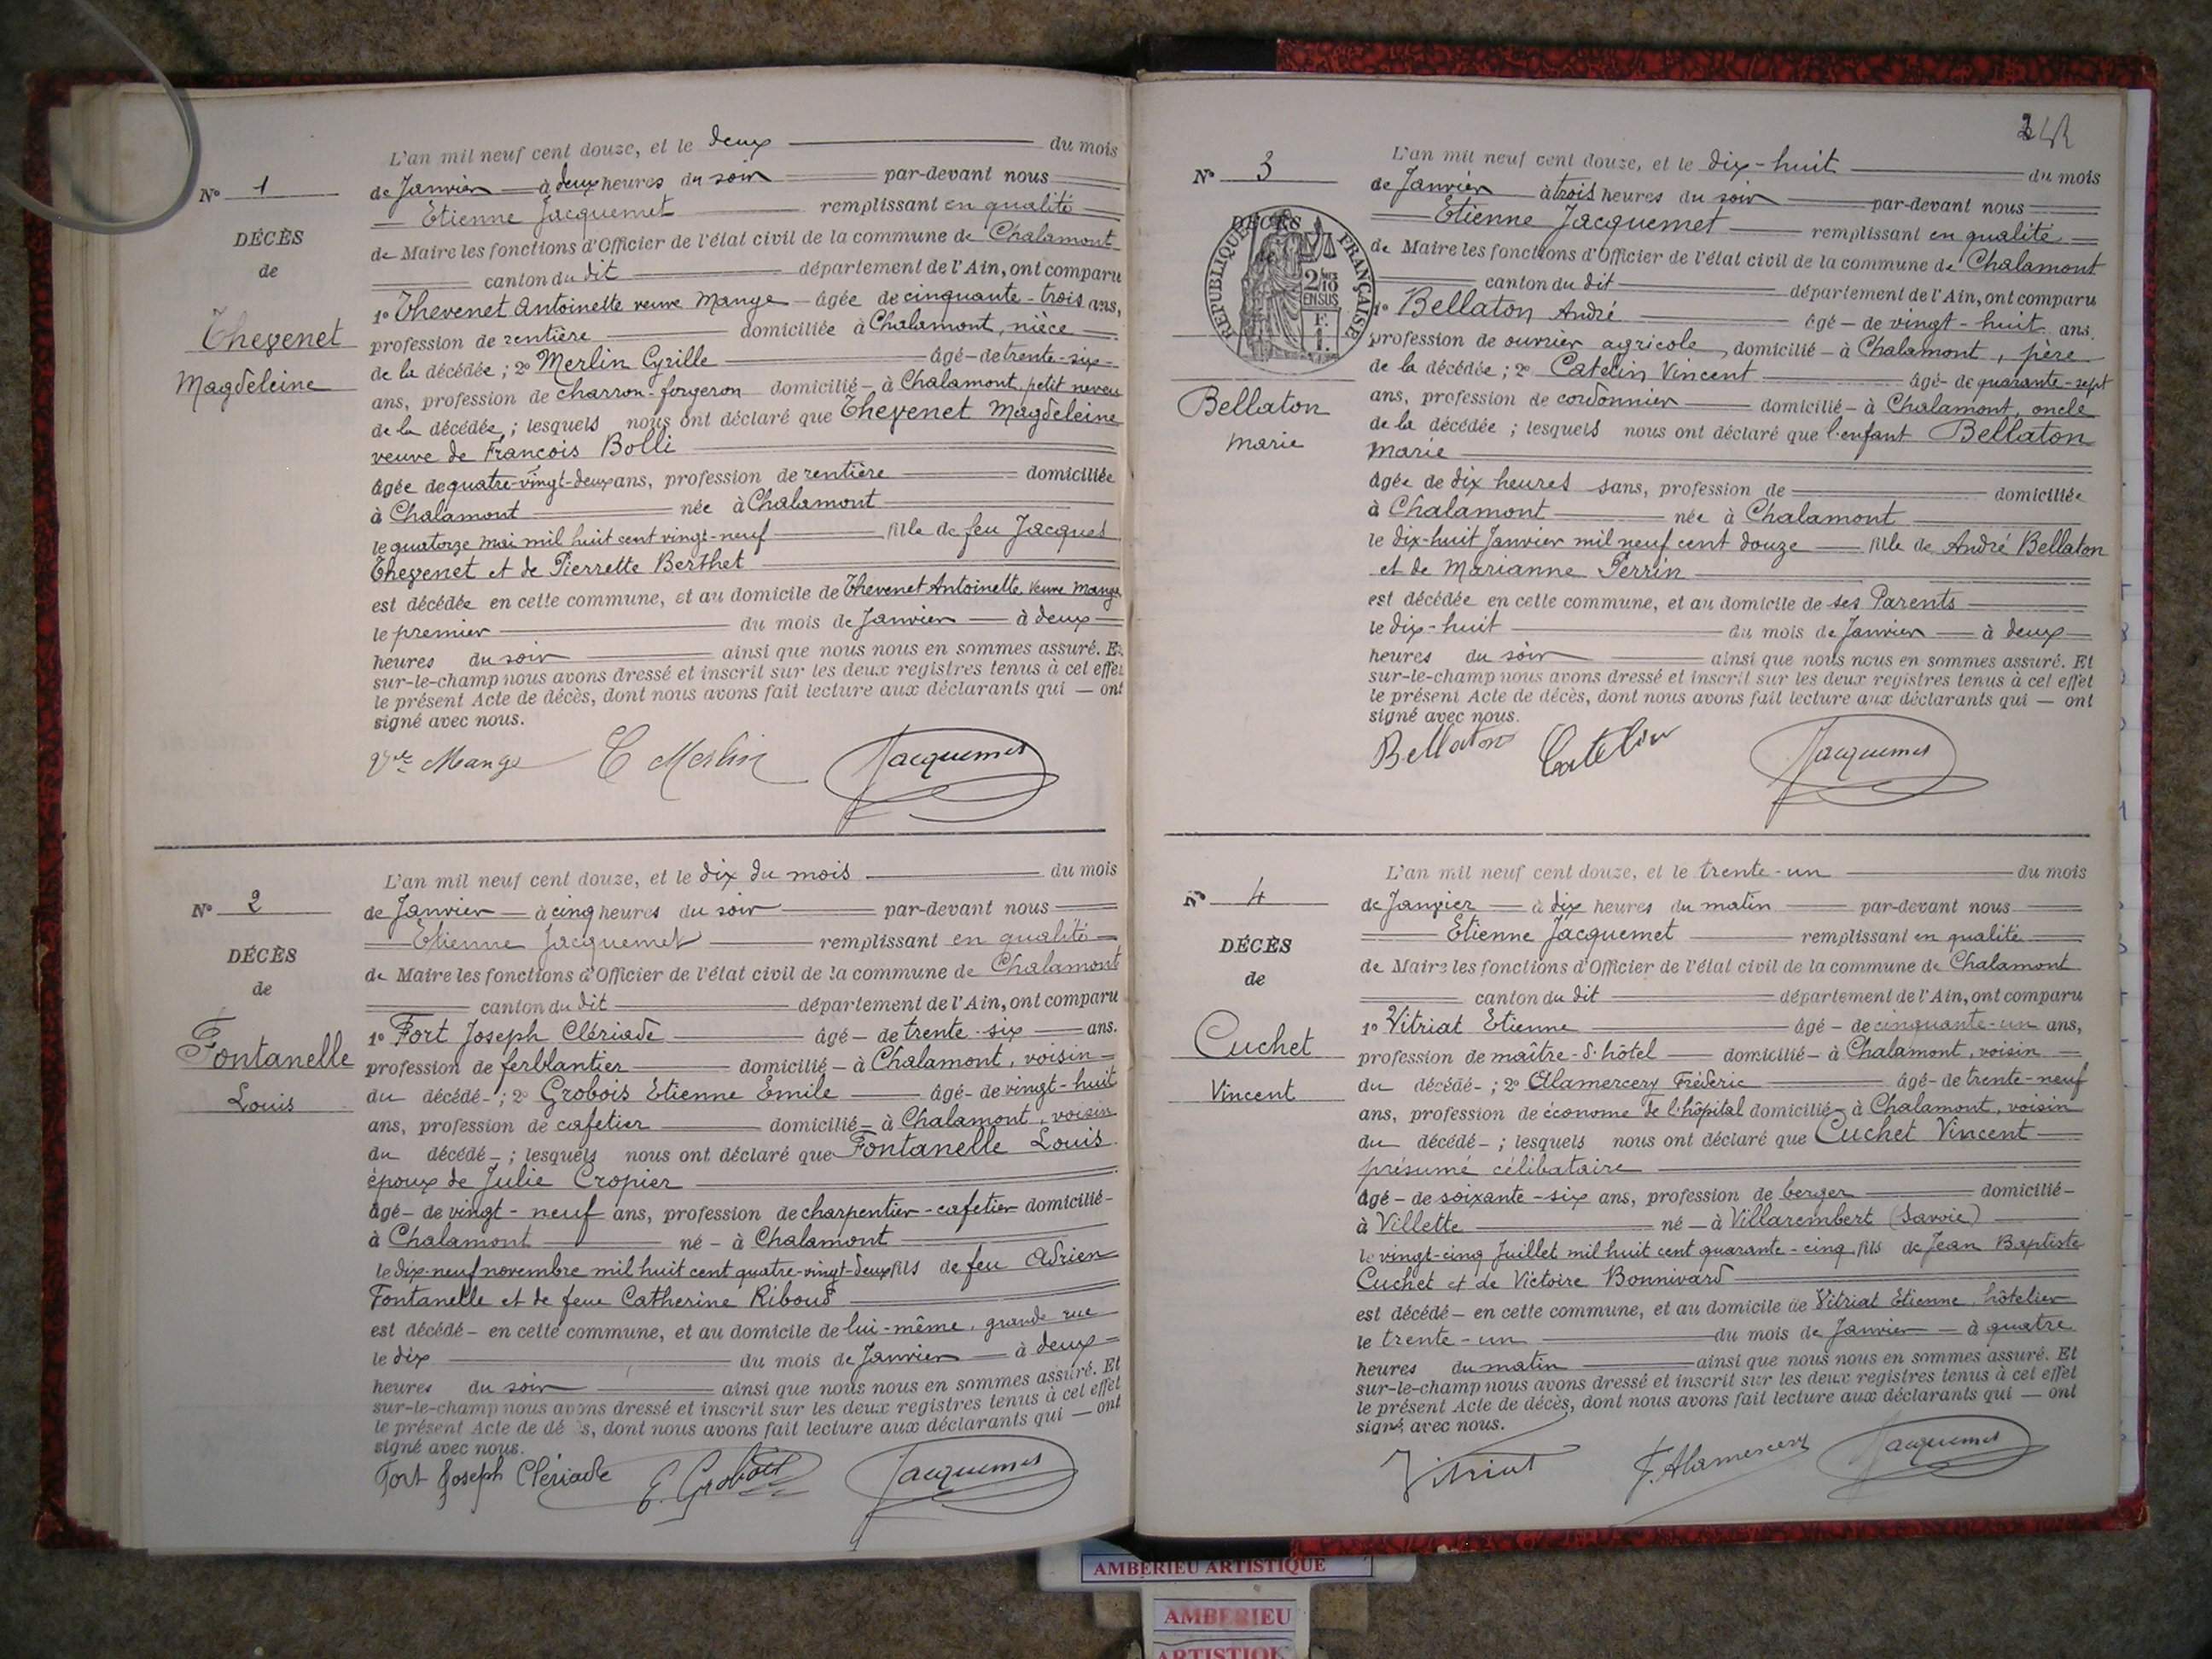 L'an mil neuf cent douze, et le deux du mois
N° 1
de Janvier à deux heures du soir par-devant nous
Etienne Jacquemet remplissant en qualité
DÉCÈS
de Maire les fonctions d'Officier de l'état civil de la commune de Chalamont
de
canton du dit département de l'Ain, ont comparu
1° Thevenet Antoinette veuve Mange âgée de cinquante-trois ans,
Thevenet
profession de rentière domiciliée à Chalamont, nièce
Magdeleine
de la décédée ; 2° Merlin Cyrille âgé de trente-six
ans, profession de charron-forgeron domicilié à Chalamont, petit neveu
de la décédée ; lesquels nous ont déclaré que Thevenet Magdeleine
veuve de François Bolli
âgée de quatre-vingt-deux ans, profession de rentière domiciliée
à Chalamont née à Chalamont
le quatorze mai mil huit cent vingt-neuf fille de feu Jacques
Thevenet et de Pierrette Berthet
est décédée en cette commune, et au domicile de Thevenet Antoinette veuve Mange
le premier du mois de Janvier à deux
heures du soir ainsi que nous nous en sommes assuré. Et
sur-le-champ nous avons dressé et inscrit sur les deux registres tenus à cet effet
le présent Acte de décès, dont nous avons fait lecture aux déclarants qui — ont
signé avec nous.
Vve Mange C Merlin Jacquemet
L'an mil neuf cent douze, et le dix du mois du mois
N° 2
de Janvier à cinq heures du soir par-devant nous
Etienne Jacquemet remplissant en qualité
DÉCÈS
de Maire les fonctions d'Officier de l'état civil de la commune de Chalamont
de
canton du dit département de l'Ain, ont comparu
1° Fort Joseph Clériade âgé — de trente-six ans.
Fontanelle
profession de ferblantier domicilié — à Chalamont, voisin
Louis
du décédé - ; 2° Grobois Etienne Emile âgé - de vingt-huit
ans, profession de cafetier domicilié - à Chalamont, voisin
du décédé - ; lesquels nous ont déclaré que Fontanelle Louis
époux de Julie Cropier
âgé - de vingt-neuf ans, profession de charpentier-cafetier domicilié -
à Chalamont né - à Chalamont
le dix-neuf novembre mil huit cent quatre-vingt-deux fils de feu Adrien
Fontanelle et de feue Catherine Riboud
est décédé - en cette commune, et au domicile de lui-même, grande rue
le dix du mois de Janvier à deux
heures du soir ainsi que nous nous en sommes assuré. Et
sur-le-champ nous avons dressé et inscrit sur les deux registres tenus à cet effet
le présent Acte de dé s, dont nous avons fait lecture aux déclarants qui — ont
signé avec nous.
Fort Joseph Clériade E. Grobois Jacquemet
L'an mil neuf cent douze, et le dix-huit du mois
N° 3
de Janvier à trois heures du soir par-devant nous
Etienne Jacquemet remplissant en qualité
DÉCÈS
RÉPUBLIQUE FRANÇAISE
2/10 EN SUS
F. 1.
de Maire les fonctions d'Officier de l'état civil de la commune de Chalamont
canton du dit département de l'Ain, ont comparu
1° Bellaton André âgé — de vingt-huit ans.
profession de ouvrier agricole, domicilié — à Chalamont, père
de la décédée ; 2° Catelin Vincent âgé - de quarante-sept
Bellaton
ans, profession de cordonnier domicilié - à Chalamont, oncle
Marie
de la décédée ; lesquels nous ont déclaré que l'enfant Bellaton
Marie
âgée de dix heures sans, profession de domiciliée
à Chalamont née à Chalamont
le dix-huit Janvier mil neuf cent douze fille de André Bellaton
et de Marianne Perrin
est décédée en cette commune, et au domicile de ses Parents
le dix-huit du mois de Janvier à deux
heures du soir ainsi que nous nous en sommes assuré. Et
sur-le-champ nous avons dressé et inscrit sur les deux registres tenus à cet effet
le présent Acte de décès, dont nous avons fait lecture aux déclarants qui — ont
signé avec nous.
Bellaton Catelin Jacquemet
L'an mil neuf cent douze, et le trente-un du mois
N° 4
de Janvier à dix heures du matin par-devant nous
Etienne Jacquemet remplissant en qualité
DÉCÈS
de Maire les fonctions d'Officier de l'état civil de la commune de Chalamont
de
canton du dit département de l'Ain, ont comparu
1° Vitriat Etienne âgé — de cinquante-un ans,
Cuchet
profession de maître-d'hôtel domicilié — à Chalamont, voisin
Vincent
du décédé - ; 2° Alamercery Fréderic âgé - de trente-neuf
ans, profession de économe de l'hôpital domicilié à Chalamont, voisin
du décédé - ; lesquels nous ont déclaré que Cuchet Vincent
présumé célibataire
âgé - de soixante-six ans, profession de berger domicilié -
à Villette né — à Villarembert (Savoie)
le vingt-cinq Juillet mil huit cent quarante-cinq fils de Jean Baptiste
Cuchet et de Victoire Bonnivard
est décédé - en cette commune, et au domicile de Vitriat Etienne, hôtelier
le trente-un du mois de Janvier à quatre
heures du matin ainsi que nous nous en sommes assuré. Et
sur-le-champ nous avons dressé et inscrit sur les deux registres tenus à cet effet
le présent Acte de décès, dont nous avons fait lecture aux déclarants qui — ont
signé avec nous.
Vitriat F. Alamercery Jacquemet
AMBERIEU ARTISTIQUE
AMBERIEU
ARTISTIQUE